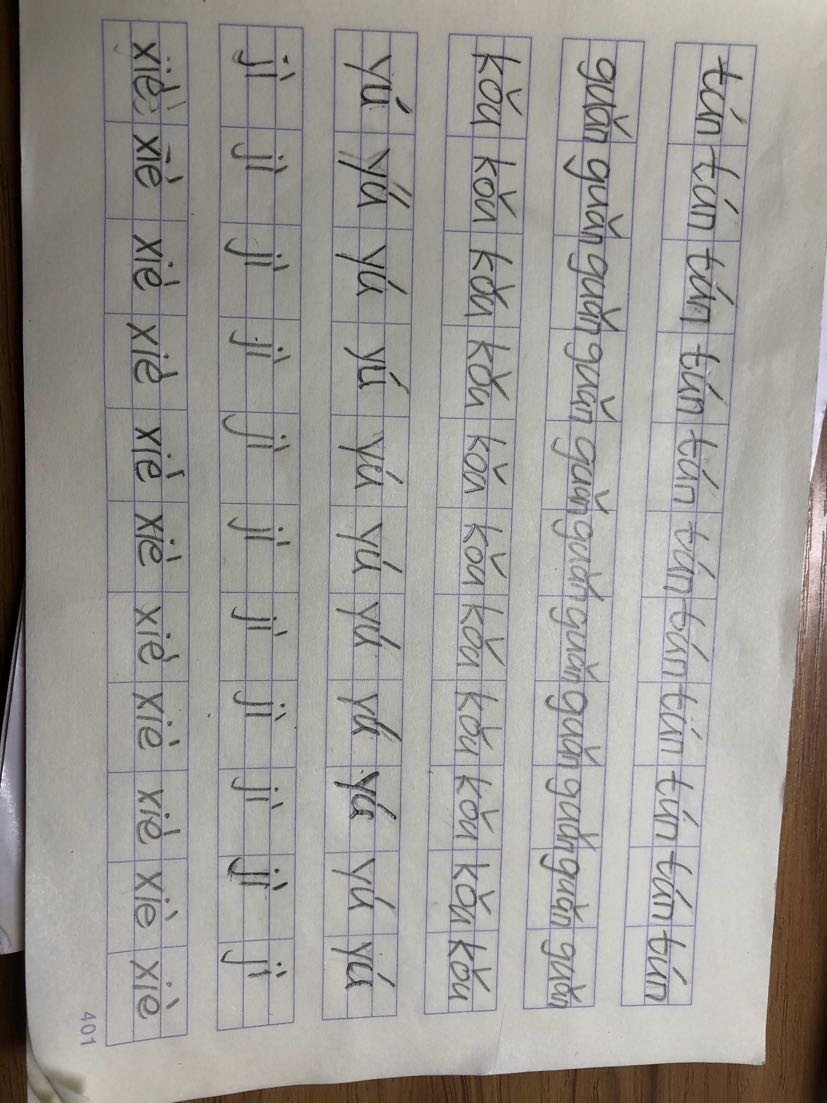 tún tún tún tún tún tún tún tún tún tún tún
guǎn guǎn guǎn guǎn guǎn guǎn guǎn guǎn guǎn guǎn guǎn
kǒu kǒu kǒu kǒu kǒu kǒu kǒu kǒu kǒu kǒu kǒu
yú yú yú yú yú yú yú yú yú yú yú
jì jì jì jì jì jì jì jì jì jì jì
xiè xiè xiè xiè xiè xiè xiè xiè xiè xiè xiè
401